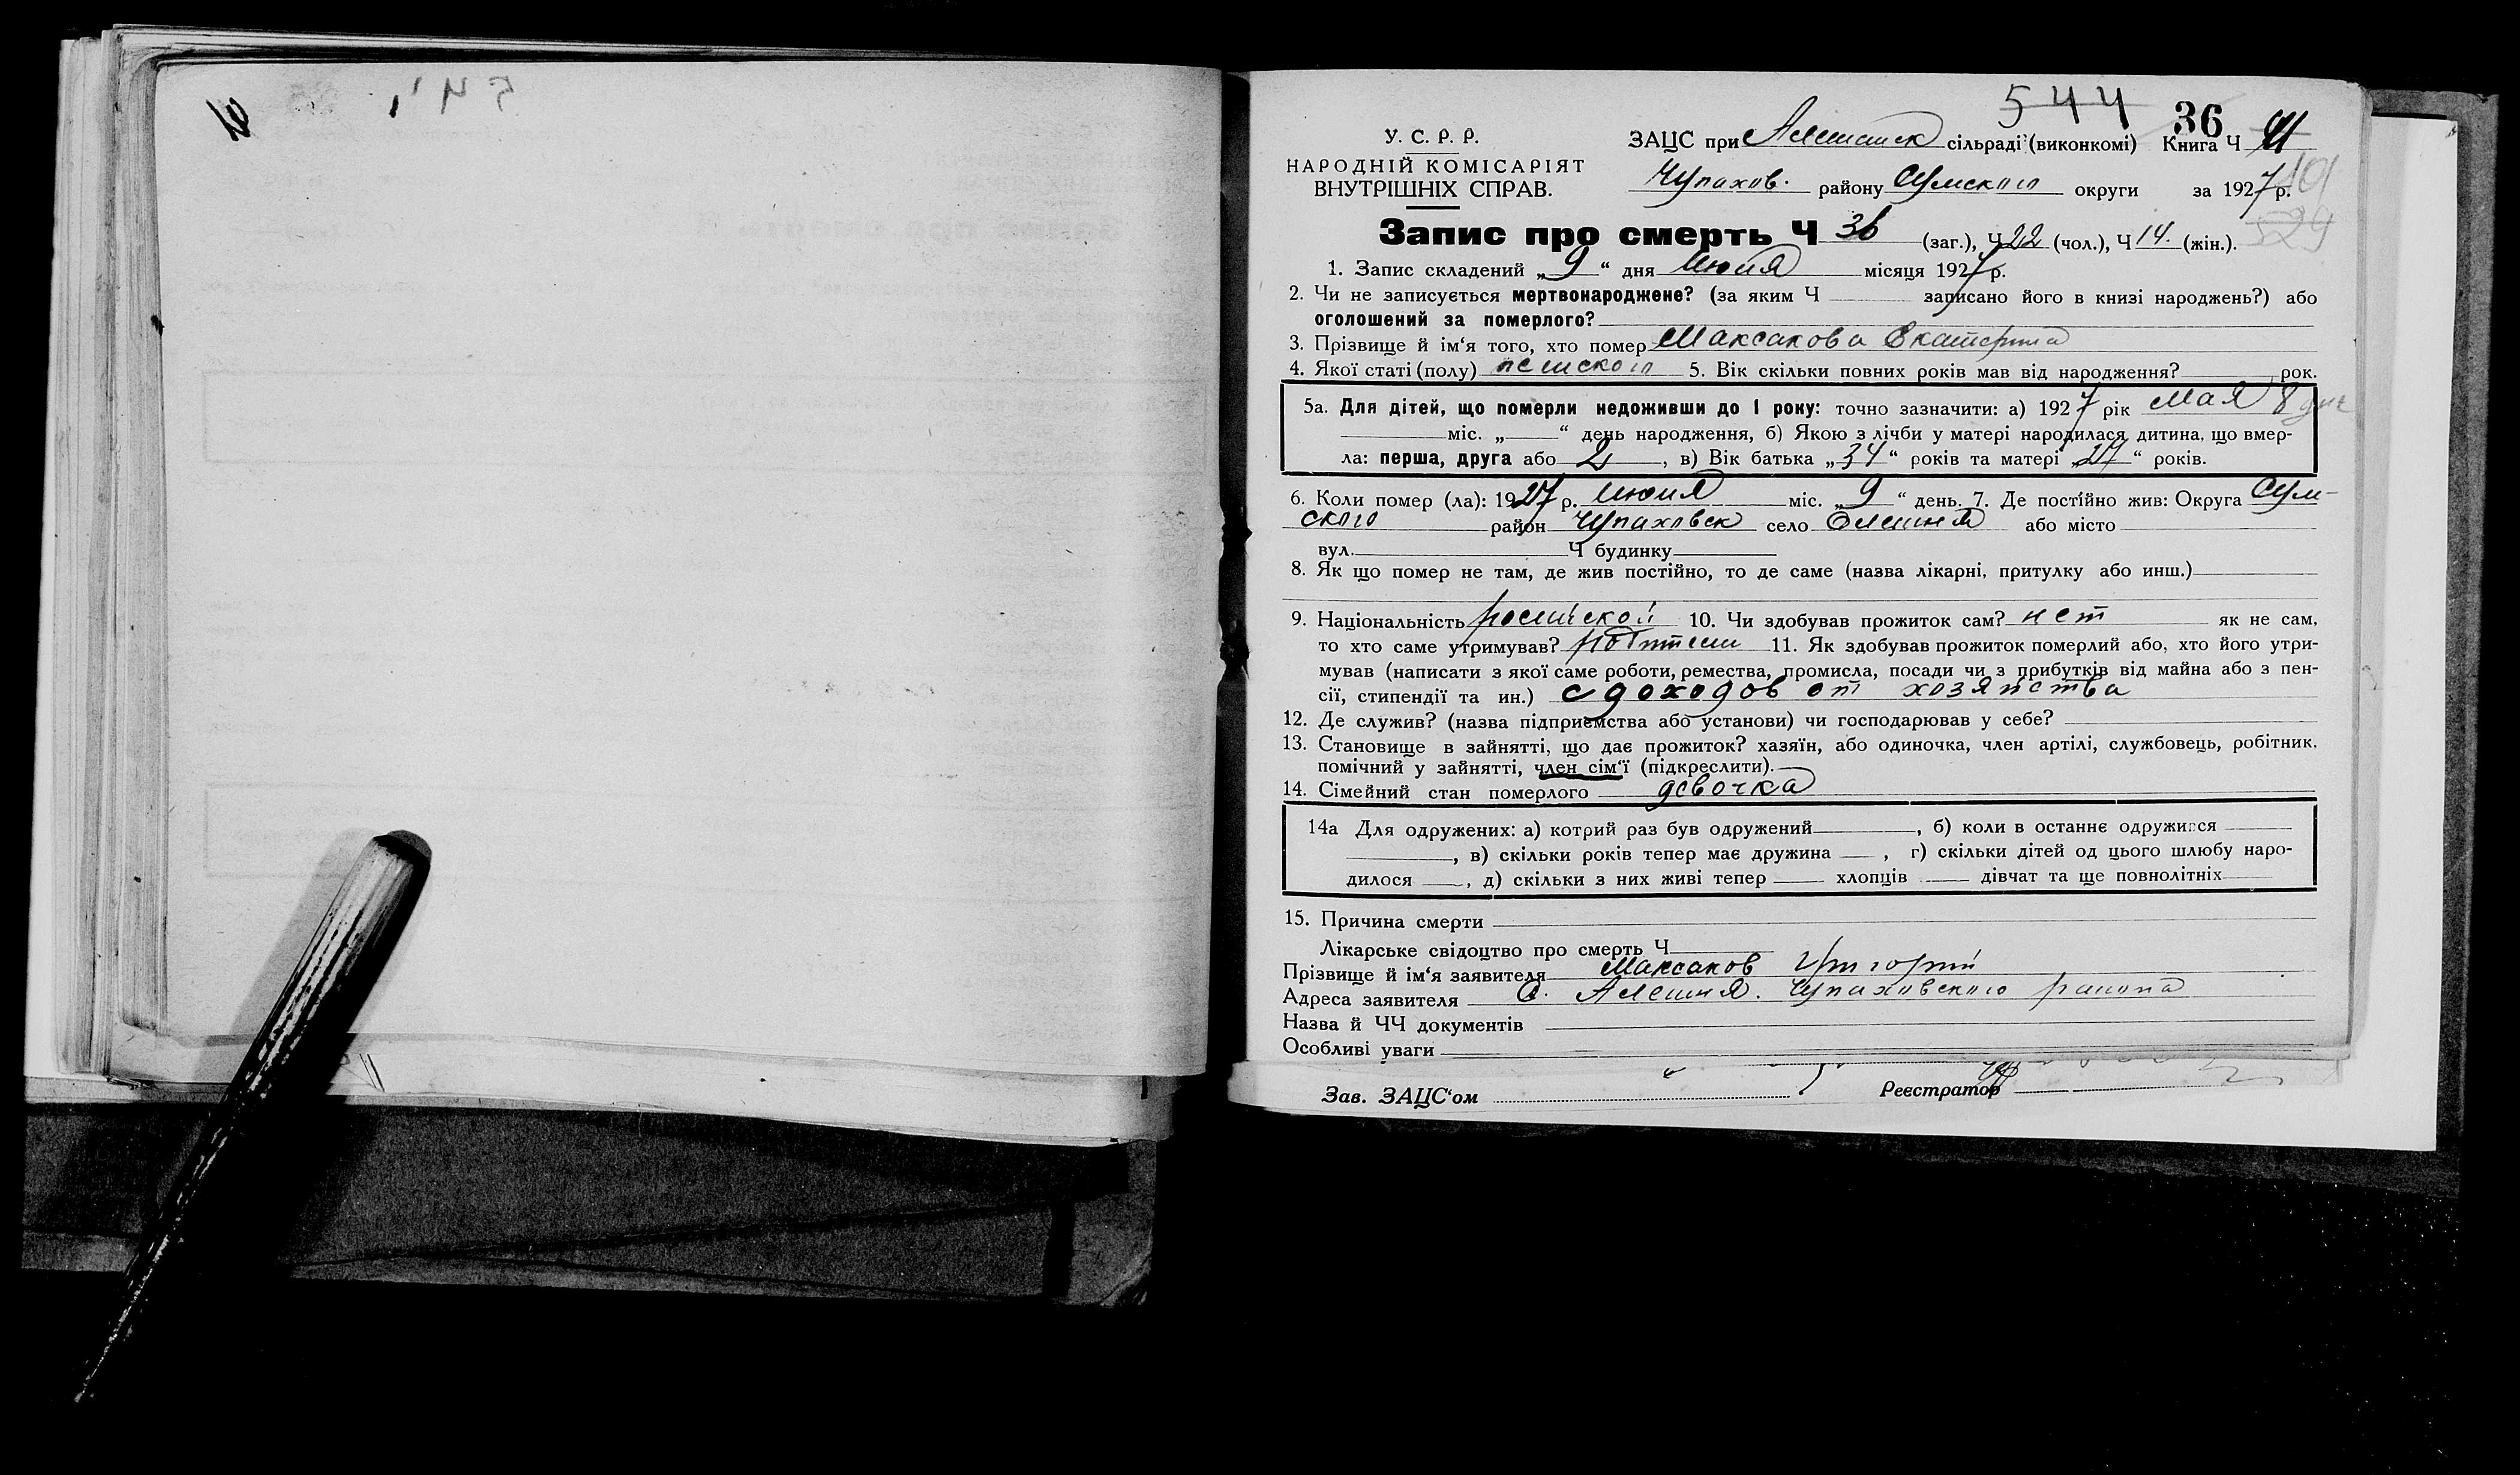 544
36
У. С. Р. Р.
НАРОДНІЙ КОМІСАРІЯТ
ВНУТРІШНІХ СПРАВ.
ЗАЦС при Алешанск сільраді (виконкомі) Книга Ч
Чупахов. району Сумского округи за 1927 р.
529
Запис про смерть Ч 36 (заг.), Ч 22 (чол.), Ч 14. (жін.).
1. Запис складений „9“ дня Июня місяця 1927 р.
2. Чи не записується мертвонароджене? (за яким Ч записано його в книзі народжень?) або
оголошений за померлого?
3. Прізвище й ім'я того, хто помер Максакова Екатерина
4. Якої статі (полу) женского 5. Вік скільки повних років мав від народження? рок.
5а. Для дітей, що померли недоживши до 1 року: точно зазначити: а) 1927 рік Мая 8 дня
міс. „ “ день народження, б) Якою з лічби у матері народилася дитина, що вмер-
ла: перша, друга або 2, в) Вік батька „34“ років та матері „27“ років.
6. Коли помер (ла): 1927 р. Июня міс. „9“ день. 7. Де постійно жив: Округа Сум-
ского район Чупаховск село Олешня або місто
вул. Ч будинку
8. Як що помер не там, де жив постійно, то де саме (назва лікарні, притулку або инш.)
9. Національність російской 10. Чи здобував прожиток сам? нет як не сам,
то хто саме утримував? 11. Як здобував прожиток померлий або, хто його утри-
мував (написати з якої саме роботи, ремества, промисла, посади чи з прибутків від майна або з пен-
сії, стипендії та ин.) с доходов от хозяйства
12. Де служив? (назва підприємства або установи) чи господарював у себе?
13. Становище в зайнятті, що дає прожиток? хазяїн, або одиночка, член артілі, службовець, робітник,
помічний у зайнятті, член сім'ї (підкреслити).
14. Сімейний стан померлого девочка
14а Для одружених: а) котрий раз був одружений , б) коли в останнє одружився
, в) скільки років тепер має дружина , г) скільки дітей од цього шлюбу наро-
дилося , д) скільки з них живі тепер хлопців дівчат та ще повнолітніх
15. Причина смерти
Лікарське свідоцтво про смерть Ч
Прізвище й ім'я заявителя Максаков Григорий
Адреса заявителя С. Алешня. Чупаховского района
Назва й ЧЧ документів
Особливі уваги
Зав. ЗАЦС'ом Реєстратор